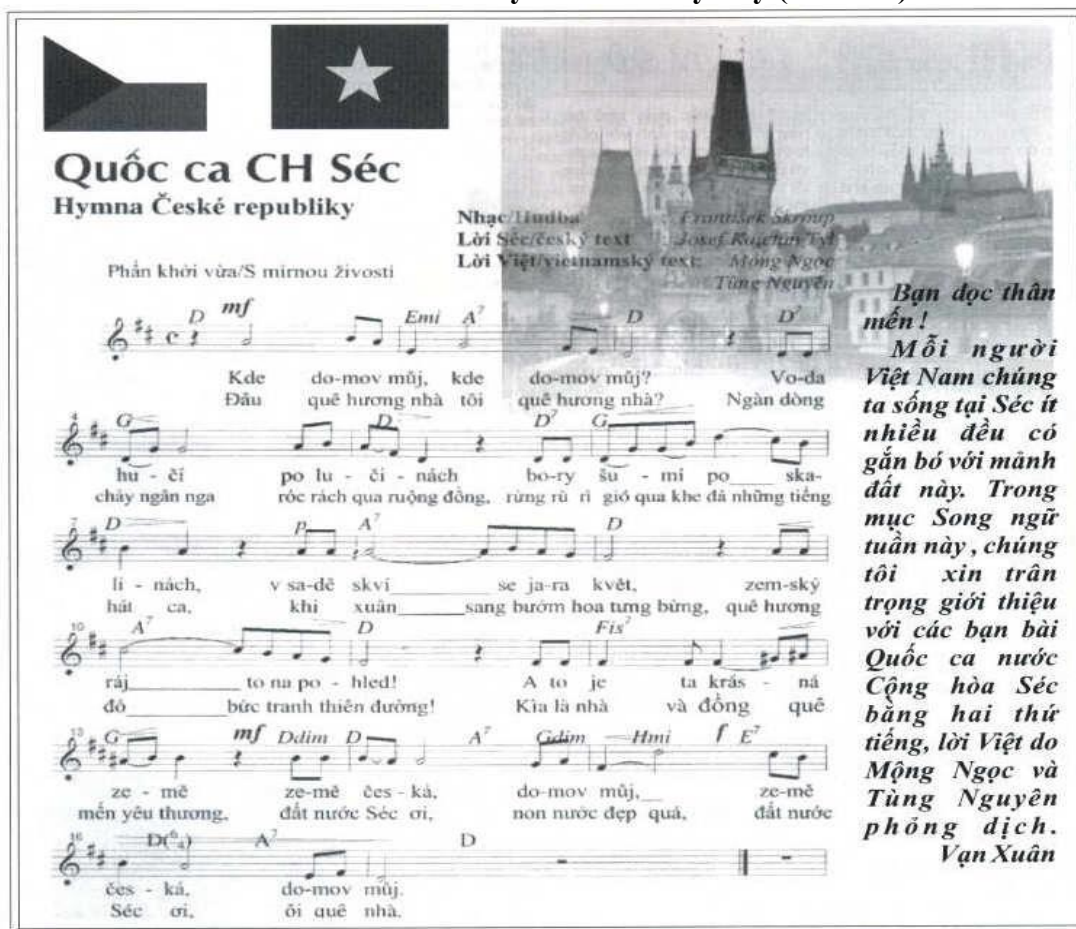 Quốc ca CH Séc
Hymna České republiky
Nhạc/Hudba : František Škroup
Lời Séc/český text : Josef Kajetán Tyl
Lời Việt/vietnamský text: Mộng Ngọc
Tùng Nguyên
Phấn khởi vừa/S mírnou živostí
D mf Emi A7 D D7
Kde do-mov můj, kde do-mov můj? Vo-da
Đâu quê hương nhà tôi quê hương nhà? Ngàn dòng
4 G D D7 G
hu - čí po lu - či - nách bo-ry šu - mí po___ ska-
chảy ngân nga róc rách qua ruộng đồng, rừng rù rì gió qua khe đá những tiếng
7 D p A7 D
li - nách, v sa-dě skví______ se ja-ra květ, zem-ský
hát ca, khi xuân______sang bướm hoa tưng bừng, quê hương
10 A7 D Fis7
ráj________to na po - hled! A to je ta krás - ná
đó________bức tranh thiên đường! Kìa là nhà và đồng quê
13 G mf Ddim D A7 Gdim Hmi f E7
ze - mě ze-mě čes - ká, do-mov můj,__ ze-mě
mến yêu thương, đất nước Séc ơi, non nước đẹp quá, đất nước
16 D(6 4) A7 D
čes - ká, do-mov můj.
Séc ơi, ôi quê nhà.
Bạn đọc thân
mến !
Mỗi người
Việt Nam chúng
ta sống tại Séc ít
nhiều đều có
gắn bó với mảnh
đất này. Trong
mục Song ngữ
tuần này , chúng
tôi xin trân
trọng giới thiệu
với các bạn bài
Quốc ca nước
Cộng hòa Séc
bằng hai thứ
tiếng, lời Việt do
Mộng Ngọc và
Tùng Nguyên
phỏng dịch.
Vạn Xuân